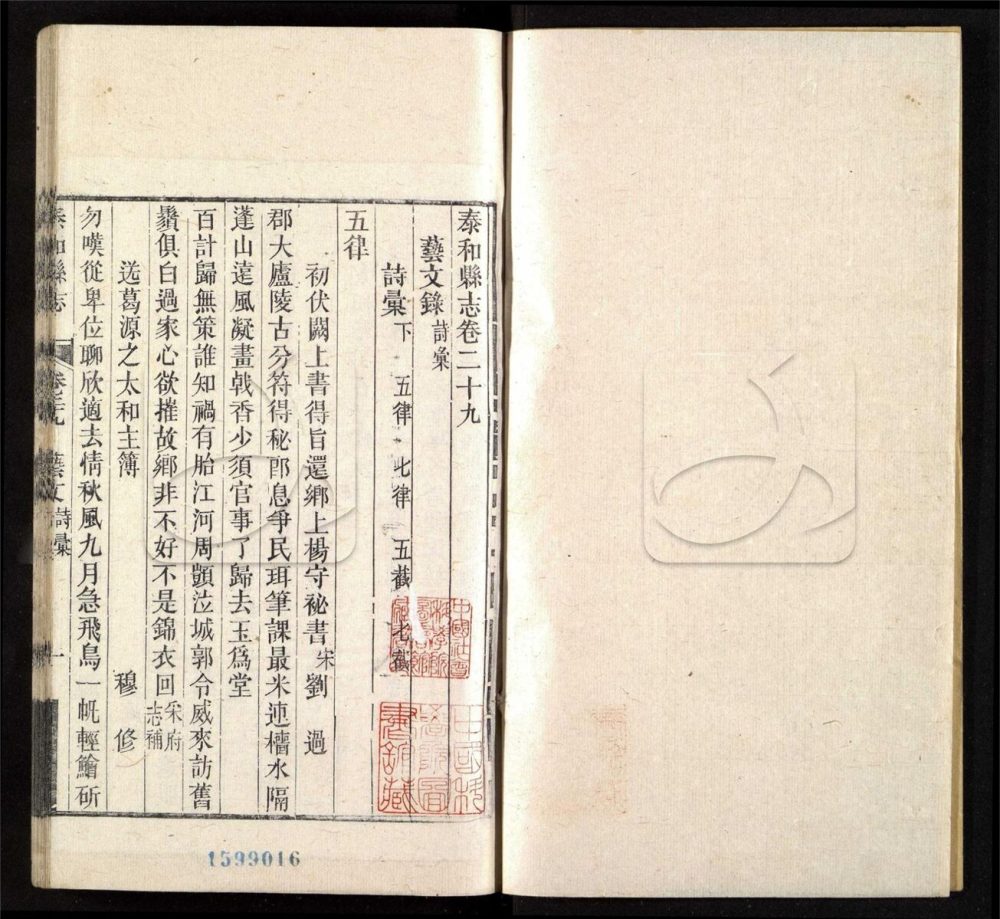 泰和縣志卷二十九
藝文錄 詩彙
詩彙下 五律 七律 五截 七截
五律
初伏闕上書得旨還鄉上楊守祕書 宋劉 過
郡大廬陵古分符得秘郎息爭民珥筆課最米連檣水隔
蓬山遠風凝畫戟香少須官事了歸去玉爲堂
百計歸無策誰知禍有胎江河周顗泣城郭令威來訪舊
鬢俱白過家心欲摧故鄉非不好不是錦衣回 采府志補
送葛源之太和主簿 穆 修
勿嘆從卑位聊欣適去情秋風九月急飛鳥一帆輕鱠斫
泰和縣志 卷二十九 藝文 詩彙 一
1599016